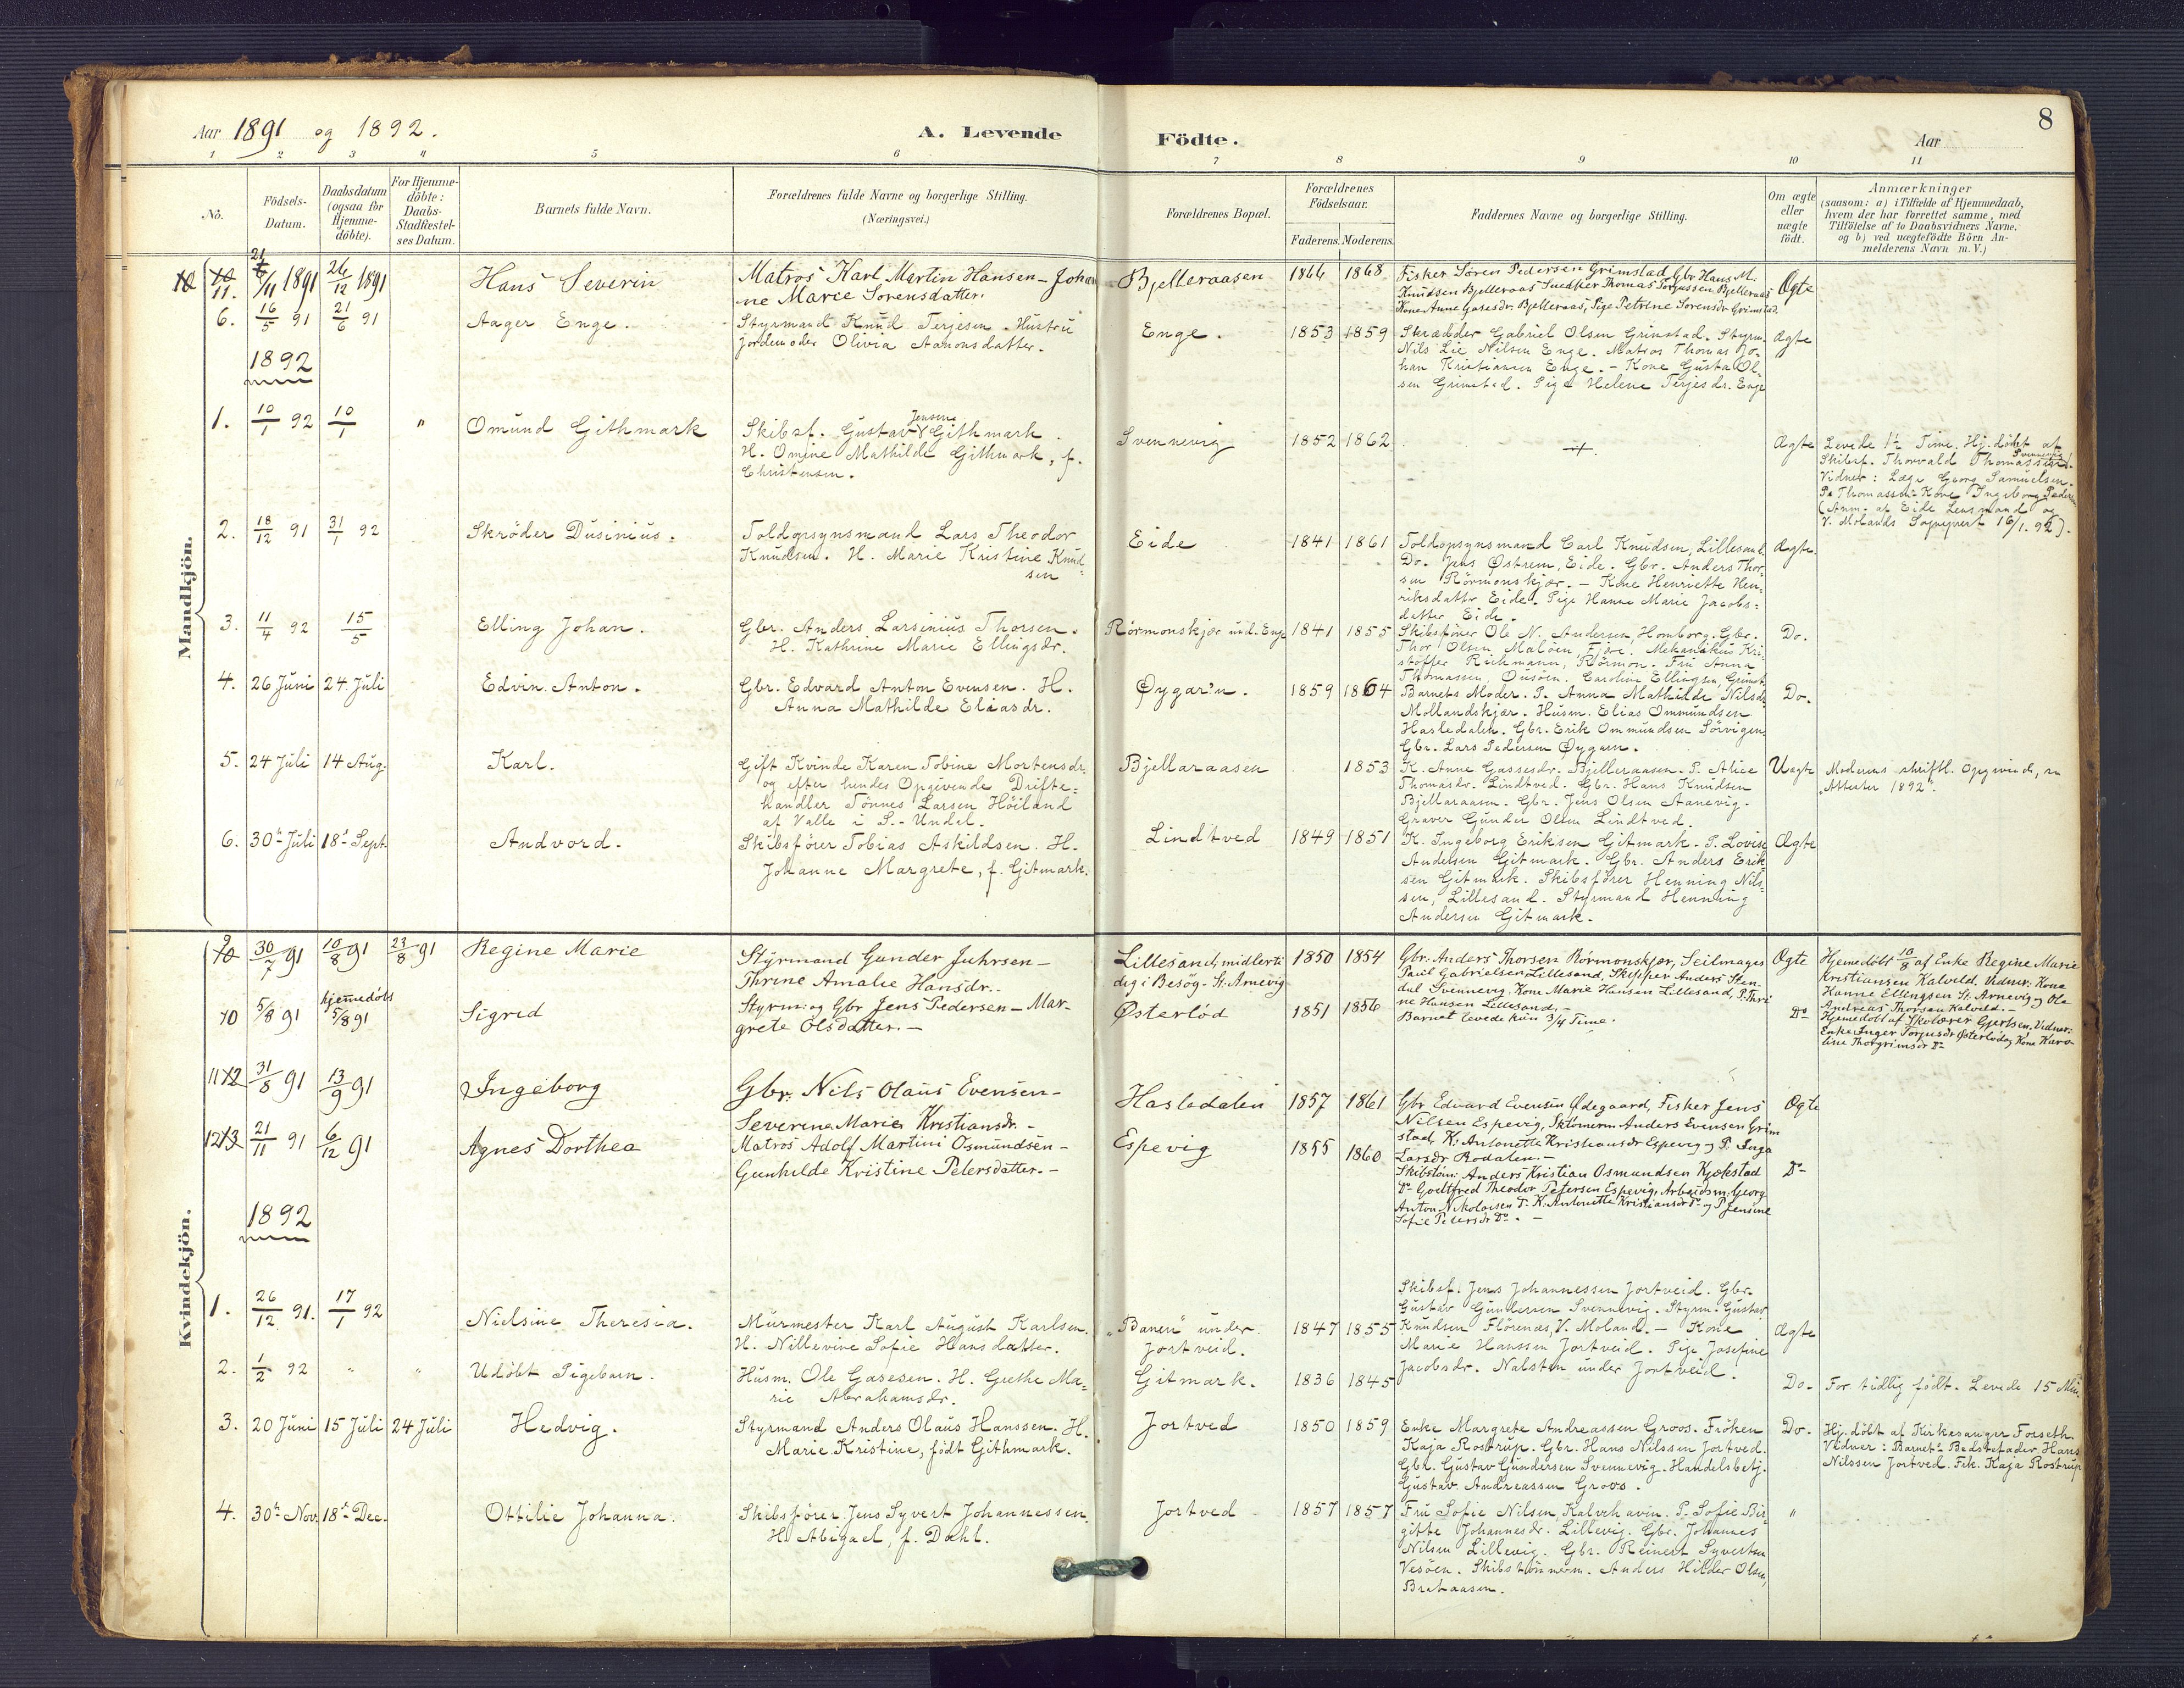 Aar 1891 og 1892.
A. Levende
Födte.
Aar
8
1 2 3 4 5 6 7 8 9 10 11
No.
Födsels-
Datum.
Daabsdatum
(ogsaa for
Hjemme-
döbte).
For Hjemme-
döbte:
Daabs-
Stadfestel-
ses Datum.
Barnets fulde Navn.
Forældrenes fulde Navne og borgerlige Stilling.
(Næringsvei.)
Forældrenes Bopæl.
Forældrenes
Födselsaar.
Faderens. Moderens.
Faddernes Navne og borgerlige Stilling.
Om ægte
eller
uægte
født.
Anmærkninger
(saasom: a) i Tilfælde af Hjemmedaab,
hvem der har forrettet samme, med
Tilföielse af to Daabsvidners Navne,
og b) ved uægtefödte Börn An-
melderens Navn m. V.)
Mandkjön.
11. 21/11 1891 26/12 1891
Hans Severin
Matros Karl Martin Hansen - Johan
ne Marie Sorensdatter.
Bjelleraasen
1866 1868
Fisker Sören Pedersen Grimstad, Gbr Hans M.
Knudsen Bjelleraas Snedker Thomas Torjussen Bjelleraas
Kone Anne Gasesdr. Bjelleraas, Pige Petrine Sorensdr Grimstad
Ægte
6. 16/5 91 21/6 91
Aager Enge.
Styrmand Knud Terjesen. Hustru
Jordemoder Olivia Aanonsdatter.
Enge.
1853 1859
Skrædder Gabriel Olsen Grimstad. Styrm.
Nils Lie Nilsen Enge. Matros Thomas Jo-
han Kristiansen Enge. - Kone Gusta Ol-
sen Grimstad. Pige Helene Terjesdr. Enge
Ægte
1892
1. 10/1 92 10/1 "
Omund Githmark
Skibsf. Gustav Jensen Githmark.
H. Omine Mathilde Githmark, f.
Christensen.
Svennevig
1852 1862
Ægte
Levede 1½ Time. Hj. döbt af
Skibsf. Thorvald Thomassen Svennevig.
Vidner: Læge Georg Samuelsen.
Pa Thomassen - Kone Ingeborg Peders
(Anm. af Eide Lensmand og
V. Molands Sognepræst 16/1. 92).
2. 18/12 91 31/1 92
Skröder Dusinius.
Toldopsynsmand Lars Theodor
Knudsen. H. Marie Kristine Knud-
sen
Eide
1841 1861
Toldopsynsmand Carl Knudsen, Lillesand.
Do. Jens Østrem, Eide. Gbr. Anders Thor-
sen Rörmonskjær. - Kone Henriette Hen-
riksdatter Eide. Pige Hanna Marie Jacobs-
datter Eide.
Ægte.
3. 11/4 92 15/5
Elling Johan.
Gbr. Anders Larsinius Thorsen.
H. Kathrine Marie Ellingsdr.
Rörmonskjær und. Enge
1841 1855
Skibsförer Ole N. Andersen, Homborg. Gbr.
Thor Olsen Malöen, Fjære. Mekanikus Kri-
stoffer Rickmann, Rörmon. Fru Anna
Thomassen, Ousöen. Caroline Ellingsen, Grimst.
Do.
4. 26 Juni 24. Juli
Edvin Anton.
Gbr. Edvard Anton Evensen. H.
Anna Mathilde Eliasdr.
Øygar'n.
1859 1864
Barnets Moder. P. Anna Mathilde Nilsdr.
Mollandskjær. Husm. Elias Ommundsen
Hasledalen. Gbr. Erik Ommundsen Sörvigen.
Gbr. Lars Pedersen Øygarn.
Do.
5. 24 Juli 14 Aug.
Karl.
Gift Kvinde Karen Tobine Mortensdr.
og efter hendes Opgivende Drifte-
handler Tönnes Larsen Höiland
af Valle i S.-Undal.
Bjellaraasen
1853
K. Anne Gassesdr. Bjelleraasen. P. Alice
Thomasdr. Lindtved. Gbr. Hans Knudsen
Bjellaraasen. Gbr. Jens Olsen Aanevig.
Graver Gunder Olsen Lindtved.
Uægte
Moderens skriftl. Opgivende, se
"Attester 1892".
6. 30te Juli 18de Sept.
Andvord.
Skibsfører Tobias Askildsen. H.
Johanne Margrete, f. Gitmark.
Lindtved
1849 1851
K. Ingeborg Eriksen Gitmark. P. Lovise
Andersen Gitmark. Gbr. Anders Erik-
sen Gitmark. Skibsfører Henning Nils-
sen, Lillesand. Styrmand Henning
Andersen Gitmark.
Ægte
Kvindekjön.
9 30/7 91 10/8 91 23/8 91
Regine Marie
Styrmand Gunder Juhrsen -
Thrine Amalie Hansdr.-
Lillesand, midlerti
dig i Besög - St. Arnevig
1850 1854
Gbr. Anders Thorsen Rörmonskjær, Seilmager
Paul Gabrielsen Lillesand, Skipper Anders Sten-
dal Svennevig. Kone Marie Hansen Lillesand, P. Thri
ne Hansen Lillesand. -
Ægte
Hjemedöbt 10/8 af Enke Regine Marie
Kristiansen Kalveld. Vidner: Kone
Hanne Ellingsen St. Arnevig og Ole
Andreas Thorsen Kalveld. -
10 5/8 91 hjemedöbt 5/8 91
Sigrid
Styrm: og Gbr Jens Pedersen - Mar-
grete Olsdatter. -
Østerlöd
1851 1856
Barnet levede kun 3/4 Time.
Do
Hjemedöbt af Skolærer Gjertsen. Vidner:
Enke Inger Torjusdr Østerlöd og Kone Karo-
line Thorgrimsdr Do
11 12 31/8 91 13/9 91
Ingeborg
Gbr. Nils Olaus Evensen -
Severine Marie Kristiansdr. -
Hasledalen
1857 1861
Gbr Edvard Evensen Ødegaard, Fisker Jens
Nilsen Espevig, Sktömerm Anders Evensen Grim
stad, K: Antonette Kristiansdr Espevig og P. Inga
Larsdr Rodalen. -
Ægte
12 13 21/11 91 6/12 91
Agnes Dorthea
Matros Adolf Martini Osmundsen -
Gunhilde Kristine Petersdatter. -
Espevig
1855 1860
Skibstöm: Anders Kristian Osmundsen Kjökstad
Do Godtfred Theodor Petersen Espevig, Arbeidsm. Georg
Anton Nikolaisen Do K: Antonette Kristiansdr Do og P Jensine
Sofie Petersdr Do. -
Do
1892
1. 26/12 91. 17/1 92
Nielsine Theresia.
Murmester Karl August Karlsen.
H. Nillevine Sofie Hansdatter.
"Banen" under
Jortveid.
1847 1855
Skibsf. Jens Johannessen Jortveid. Gbr.
Gustav Gundersen Svennevig. Styrm. Gustav
Knudsen Flörenæs, V. Moland. - Kone
Marie Hanssen Jortveid. Pige Josefine
Jacobsdr. Nalsten under Jortveid.
Ægte
2. 1/2 92 " "
Udöbt Pigebarn.
Husm. Ole Gasesen. H. Grethe Ma-
rie Abrahamsdr.
Gitmark.
1836 1845
Do.
For tidlig födt. Levede 15 Min.
3. 20 Juni 15 Juli 24 Juli
Hedvig.
Styrmand Anders Olaus Hanssen. H.
Marie Kristine, født Githmark.
Jortved
1850 1859
Enke Margrete Andreassen Groos. Fröken
Kaja Rostrup. Gbr. Hans Nilssen Jortved.
Gbr. Gustav Gundersen Svennevig. Handelsbetj.
Gustav Andreassen Groos.
Do.
Hj. döbt af Kirkesanger Forseth.
Vidner: Barnets Bedstefader Hans
Nilssen Jortved. Frk. Kaja Rostrup
4. 30te Nov. 18de Dec.
Ottilie Johanna.
Skibsfører Jens Syvert Johannessen.
H. Abigael, f. Dahl.
Jortved
1857 1857
Fru Sofie Nilsen Kalvehaven. P. Sofie Bir-
gitte Johannesdr. Lillevig. Gbr. Johannes
Nilsen Lillevig. Gbr. Reinert Syvertsen
Vesöen. Skibstömmerm. Anders Hilder Olsen,
Brehaasen.
"